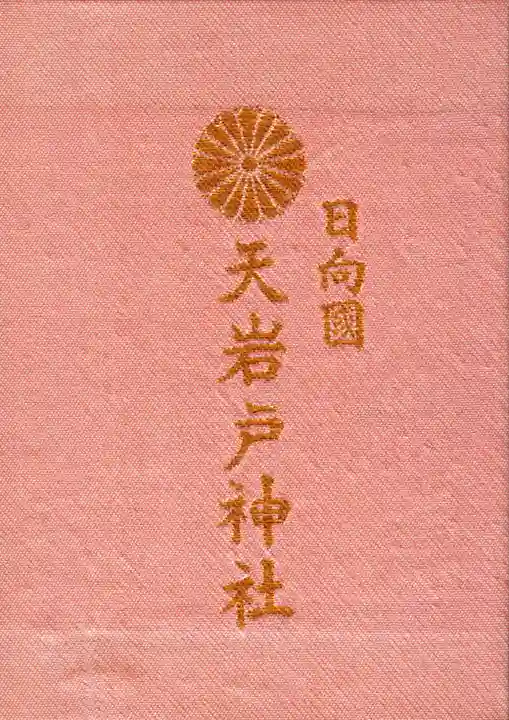 日向國
天岩戸神社